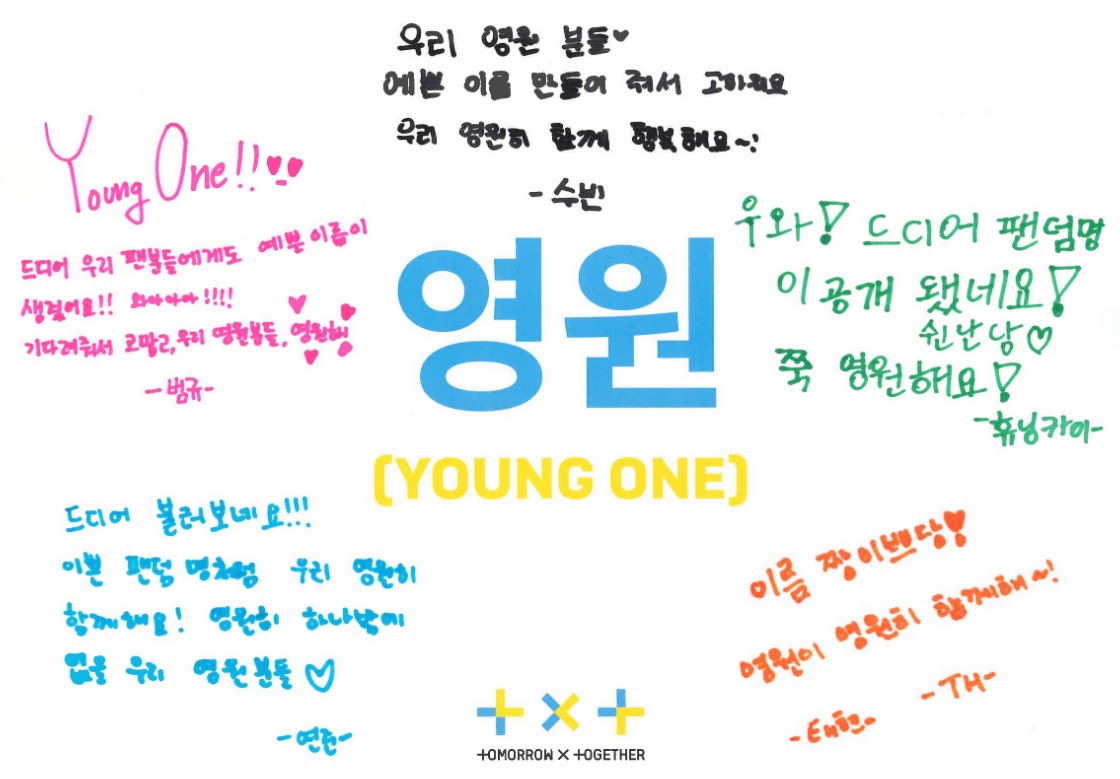 우리 영원 분들♥
예쁜 이름 만들어 줘서 고마워요
우리 영원히 함께 행복해요~!
- 수빈
Young One!!
드디어 우리 팬분들에게도 예쁜 이름이
생겼어요!! 와아아아!!!!
기다려줘서 고맙고, 우리 영원분들, 영원해!
-범규-
우와! 드디어 팬덤명
이 공개 됐네요!
쉰난당♡
쭉 영원해요!
-휴닝카이-
영원
(YOUNG ONE)
드디어 불러보네요!!!
이쁜 팬덤 명처럼 우리 영원히
함께해요! 영원히 하나밖에
없을 우리 영원분들♡
-연준-
이름 짱이쁘당!
영원이 영원히 함께해~!
-태현- -TH-
+×+
TOMORROW × TOGETHER